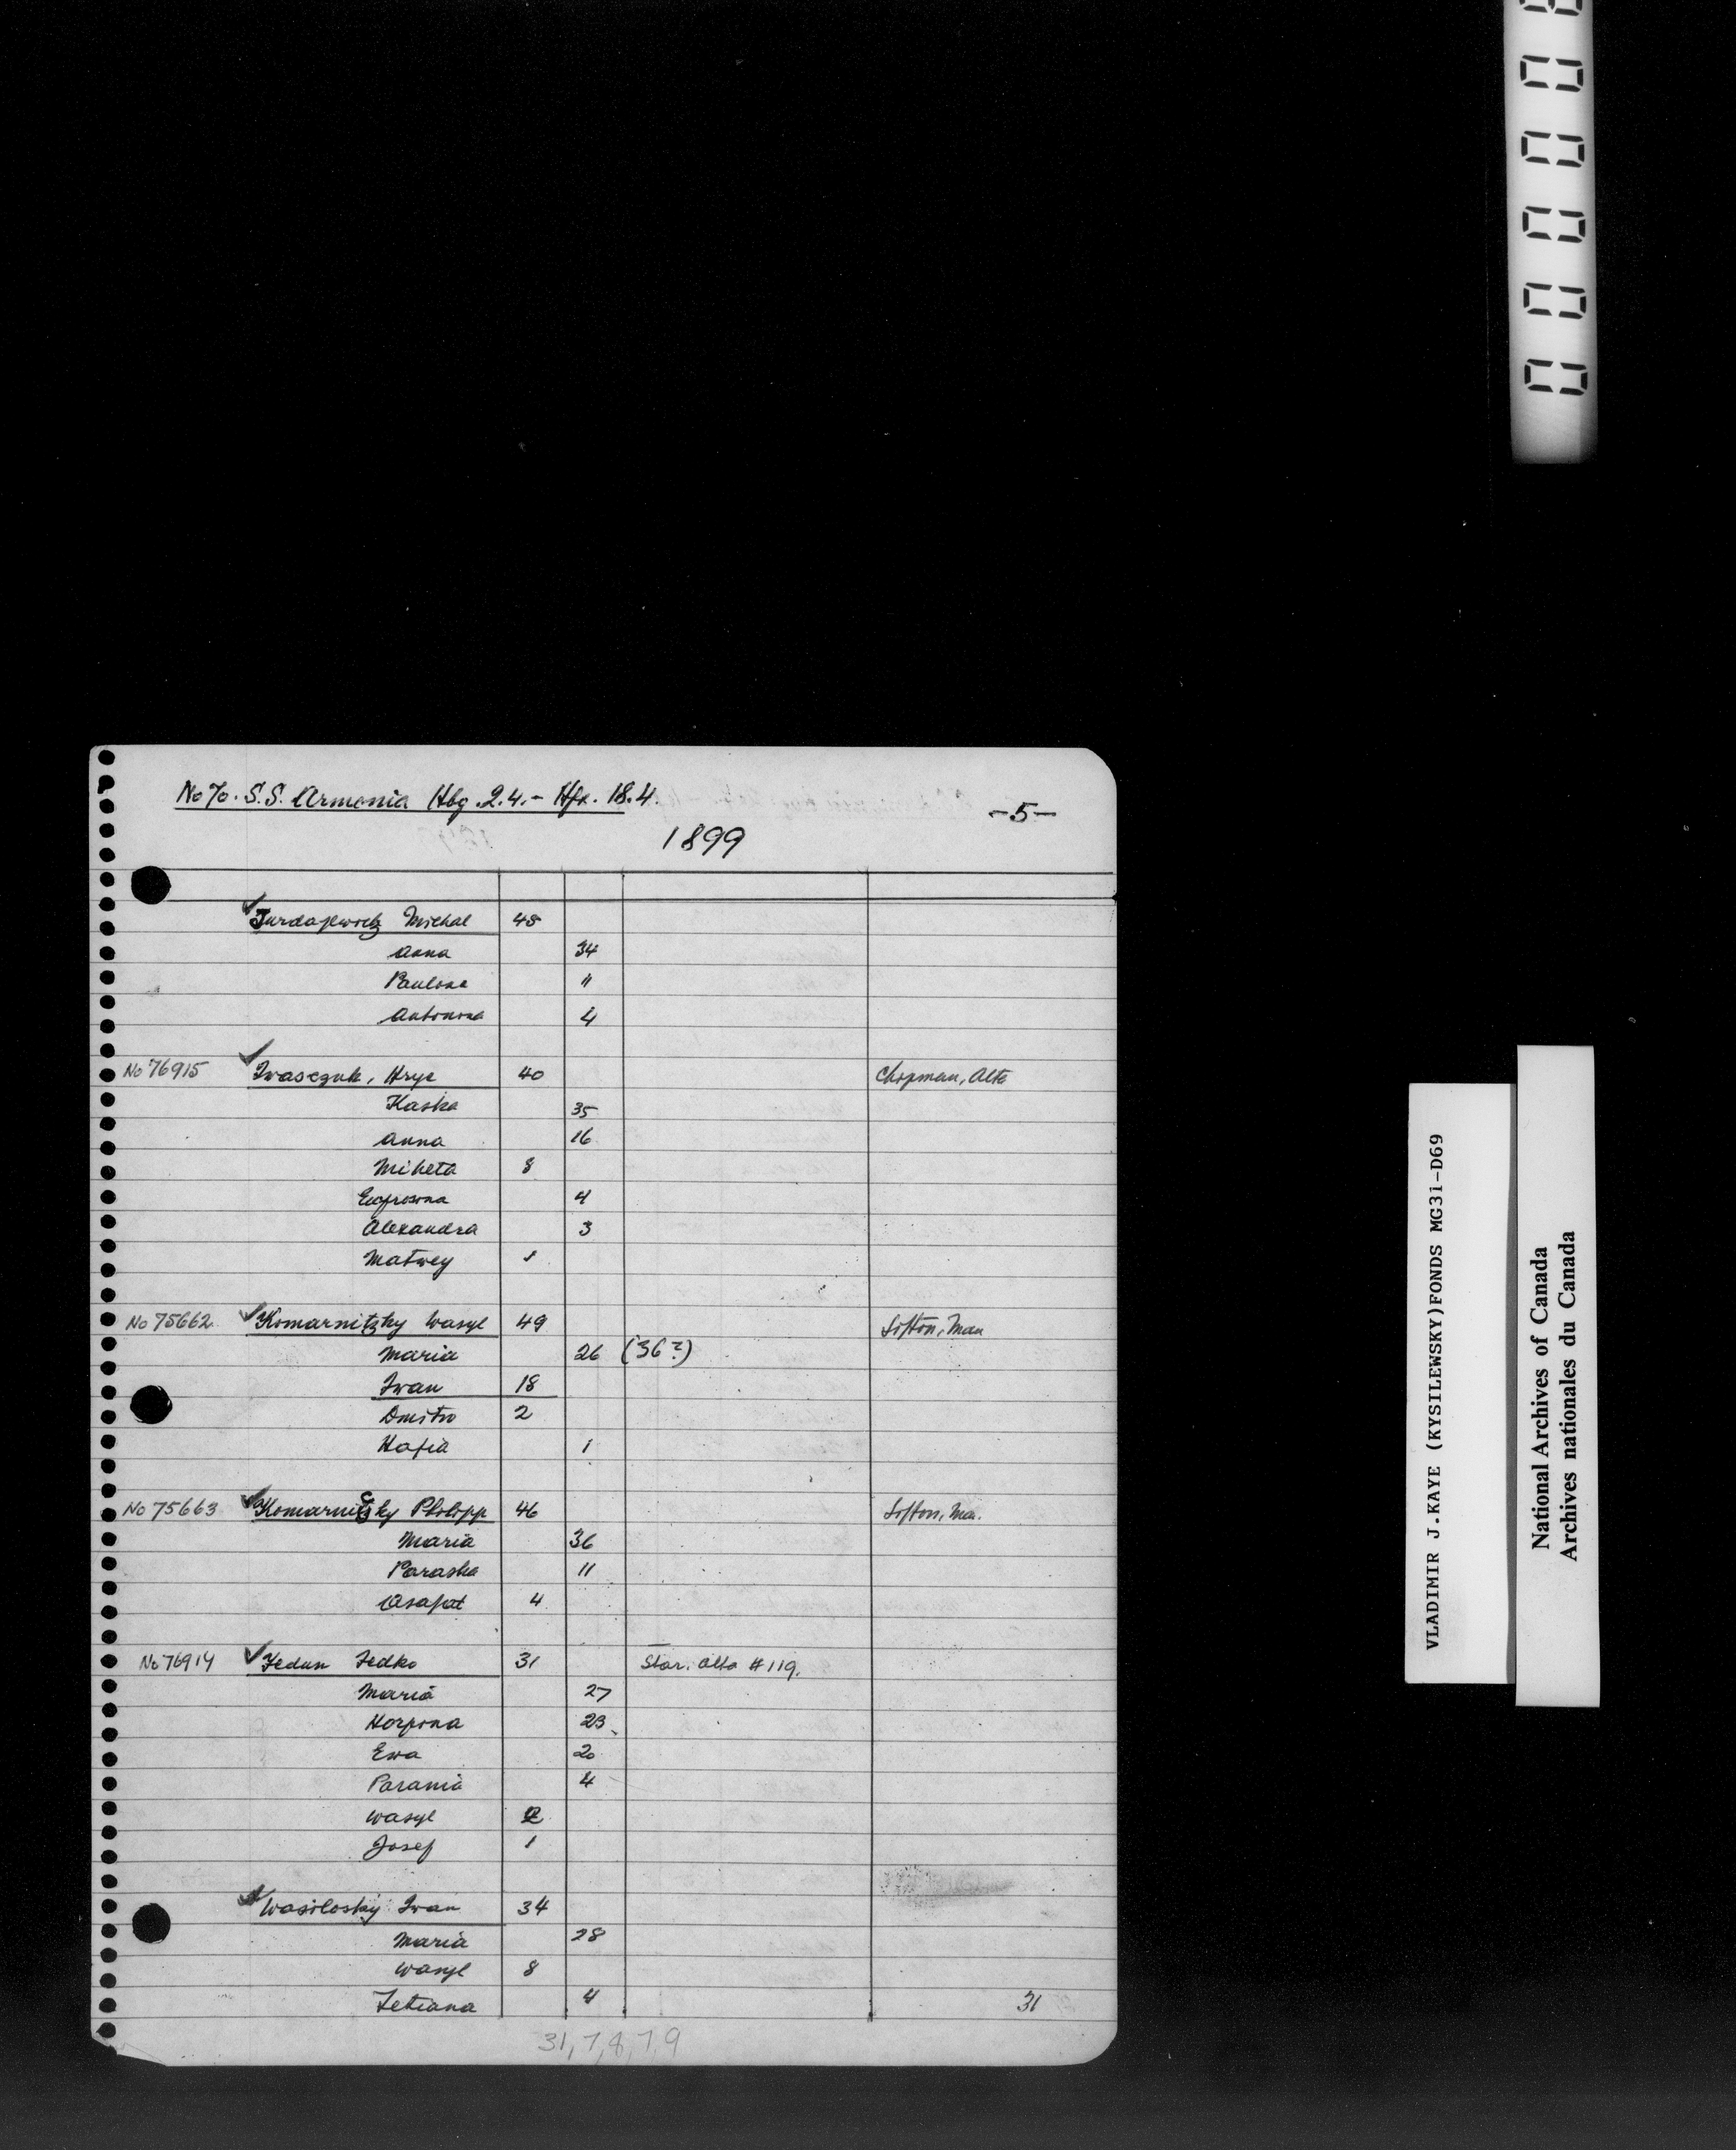 No 70. S.S. Armenia Hbg. 2.4. - Hfx. 18.4.
-5-
1899
Michal 48
Anna 34
Paulina 11
Antonina 4
No 76915 Iwasczuk, Hryc 40 Chipman, Alta
Kaska 35
Anna 16
Miketa 8
Eufrosina 4
Alexandra 3
Matwey 1
No 75662 Komarnitzky Wasyl 49 Sifton, Man
Maria 26 (36?)
Iwan 18
Dmitro 2
Hafia 1
No 75663 Komarnicky Philipp 46 Sifton, Ma.
Maria 36
Paraska 11
Asafat 4
No 76914 Fedun Fedko 31 Star. Alta #119.
Maria 27
Horpina 23
Ewa 20
Parania 4
Wasyl 2
Josef 1
Wasilosky Iwan 34
Maria 28
Wasyl 8
Tetiana 4 31
31,7,8,7,9
VLADIMIR J.KAYE (KYSILEWSKY)FONDS MG31-D69
National Archives of Canada
Archives nationales du Canada